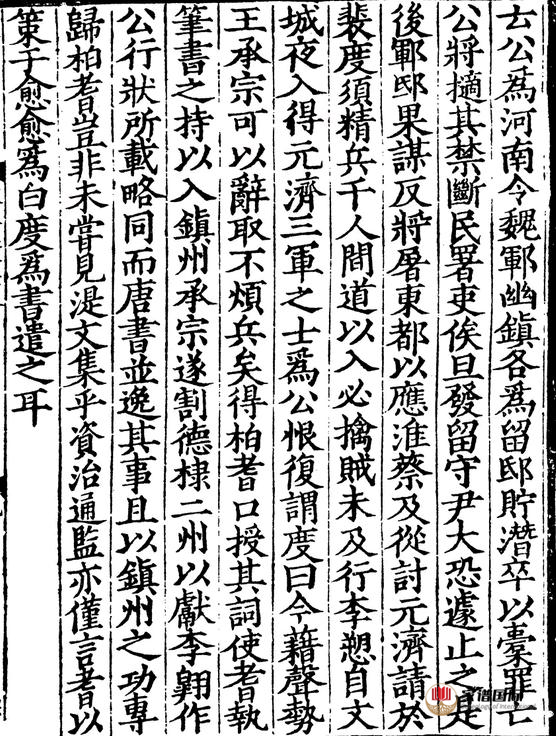 云公為河南令魏鄆幽鎮各為留邸貯潛卒以橐罪亡
公將擿其禁斷民署吏俟旦發留守尹大恐遽止之是
後鄆邸果謀反將屠東都以應淮蔡及從討元濟請於
裴度須精兵千人間道以入必擒賊未及行李愬自文
城夜入得元濟三軍之士為公恨復謂度曰今藉聲勢
王承宗可以辭取不煩兵矣得柏耆口授其詞使耆執
筆書之持以入鎮州承宗遂割德棣二州以獻李翺作
公行狀所載略同而唐書並逸其事且以鎮州之功專
歸柏耆豈非未嘗見湜文集乎資治通監亦僅言耆以
策于愈愈為白度為書遣之耳
家谱国际